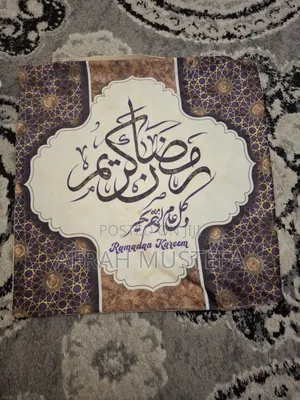 رمضان كريم
وكل عام وأنتم بخير
Ramadan Kareem
POSTED ON Jiji
FERAH MUSTEFA